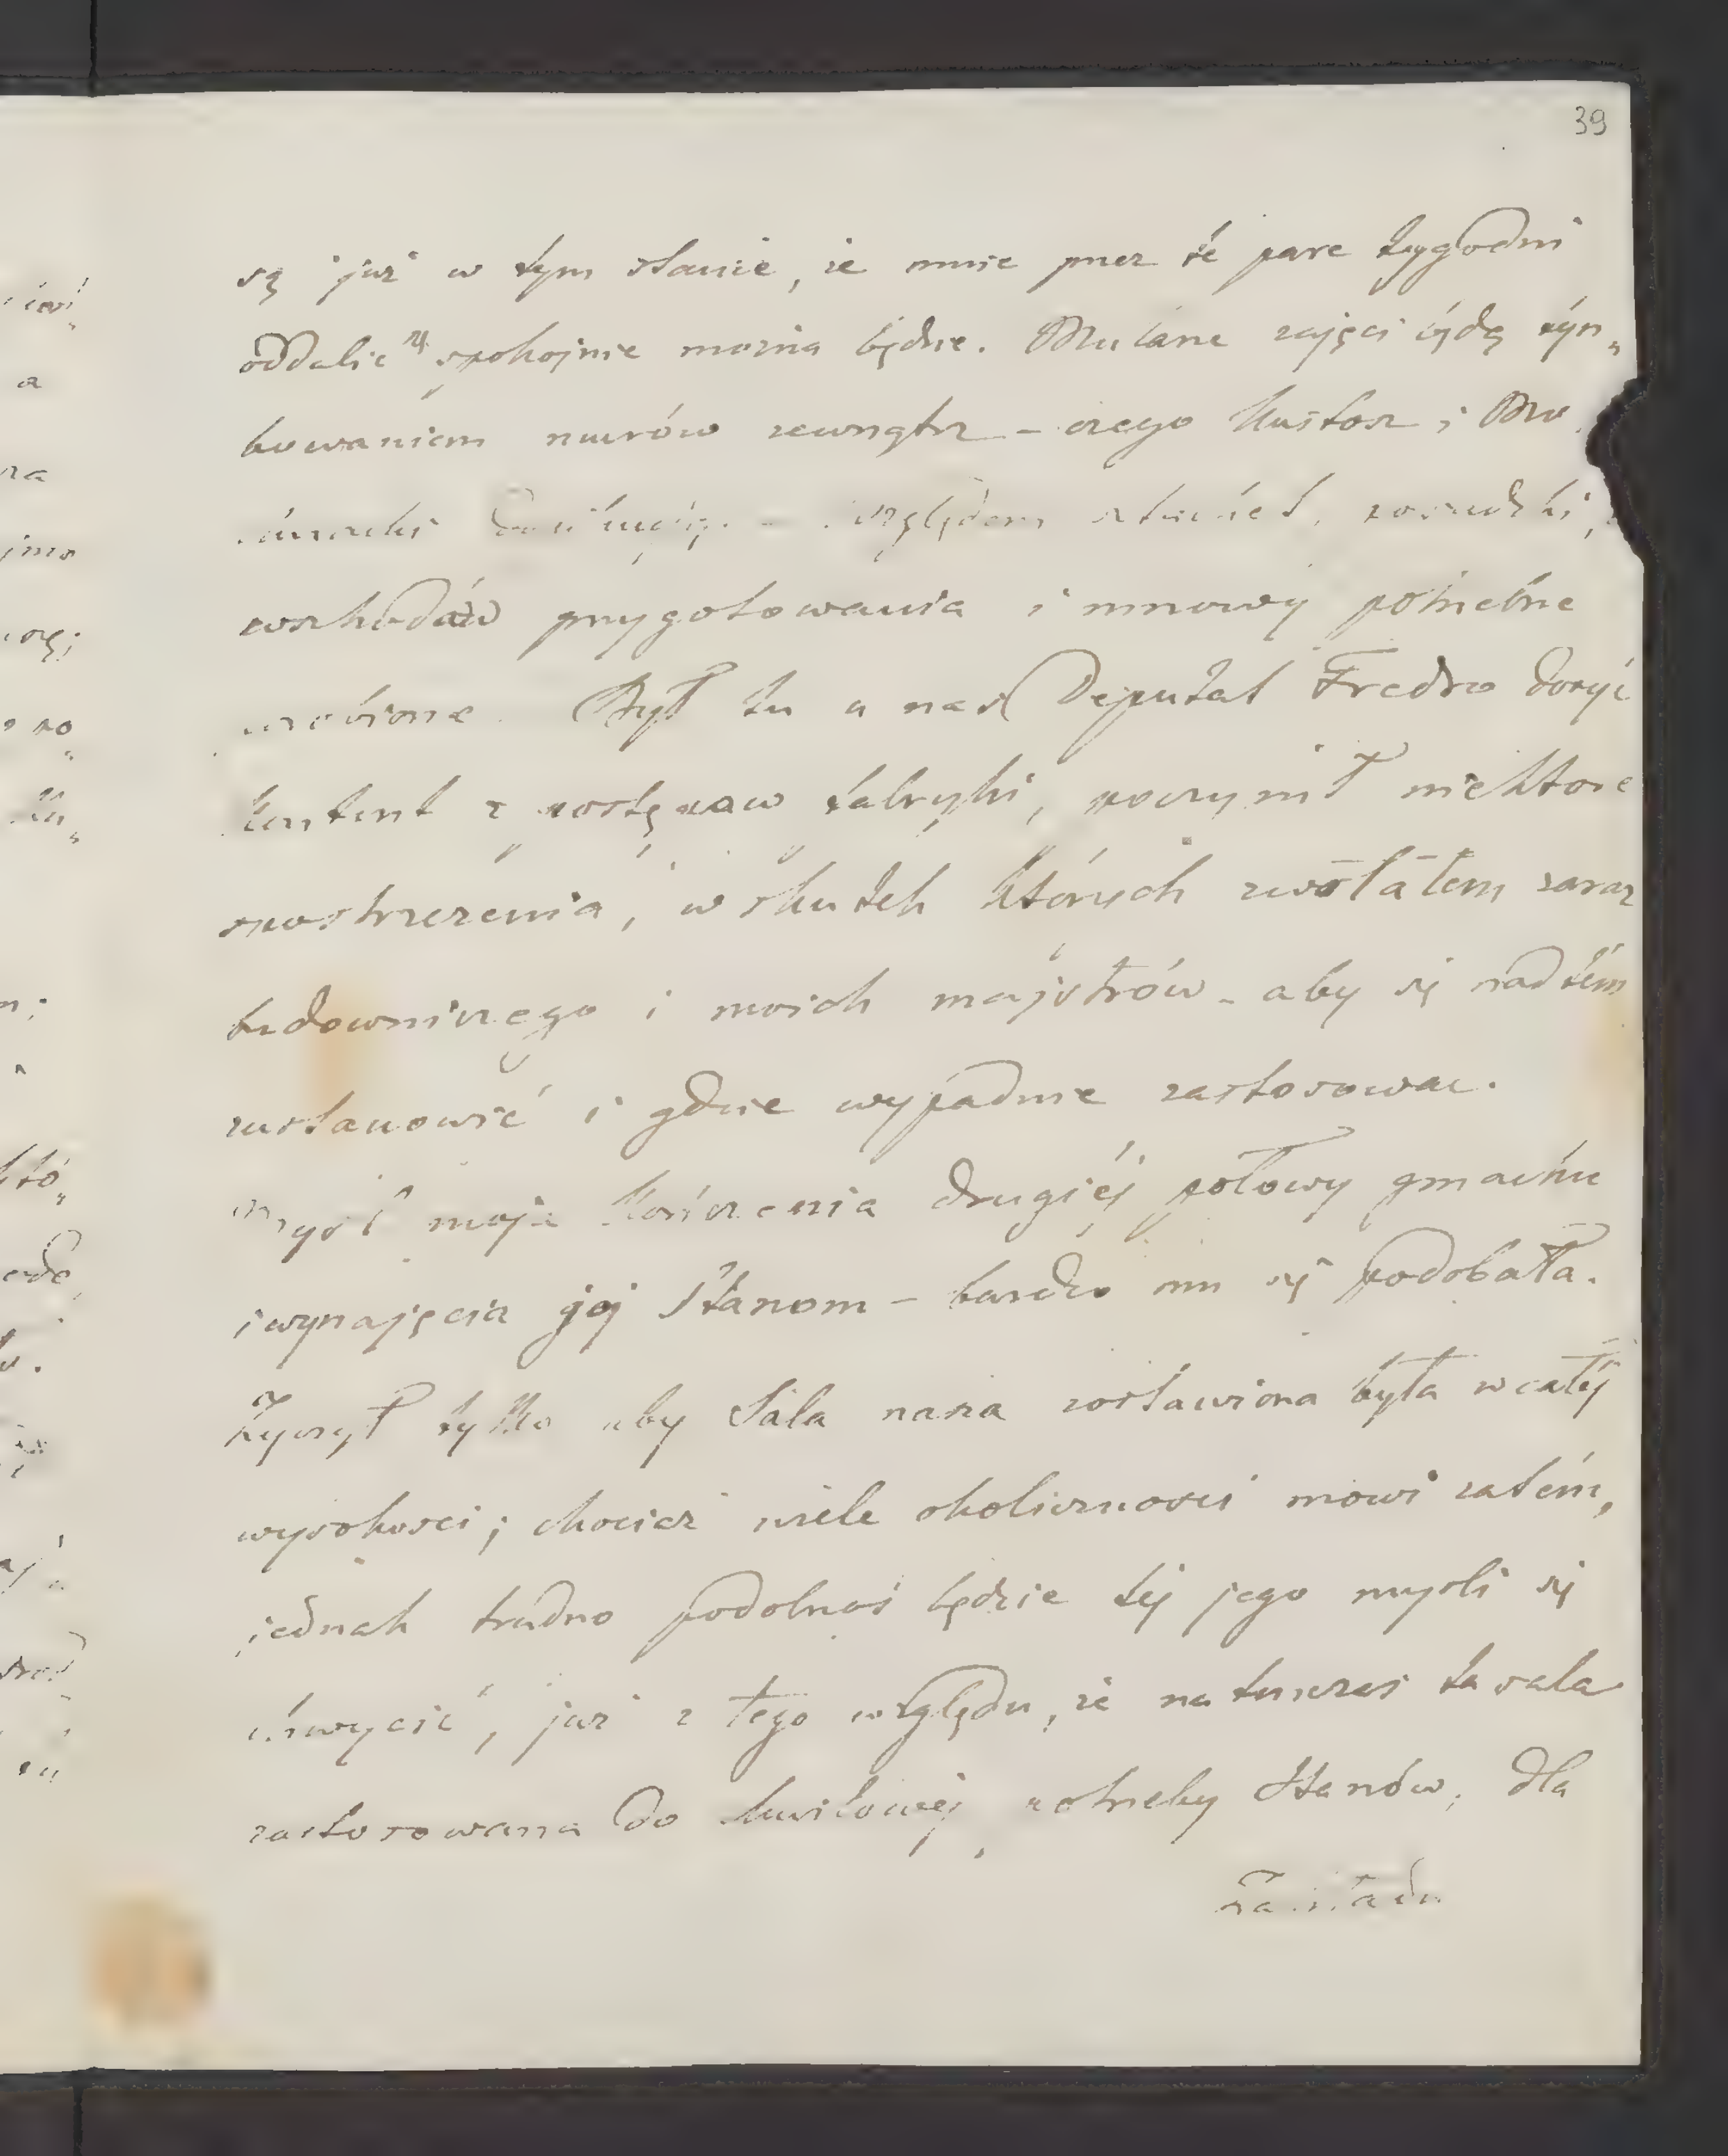 39
są już w tym stanie, że mnie przez te pare tygodni
oddalić się spokojnie można będzie. Mularze zajęci będą tyn„
kowaniem murów zewnątrz – czego Kustosz i
względem okien,
wschodów przygotowania i umowy potrzebne
zrobione. Był tu u nas Deputat Fredro dosyć
kontent z postępow fabryki, poczynił niektore
spostrzeżenia, w skutek których zwołałem zaraz
budowniczego i moich majstrów – aby się nad tém
zastanowić i gdzie wypadnie zastosować.
Myśl moja kończenia drugiéj połowy gmachu
i wynajęcia jej Stanom – bardzo mu się podobała.
Życzył tylko aby Sala nasza zostawiona była w całéj
wysokosci; chociaż wiele okoliczności mowi zatém,
jednak trudno podobnoś będzie tej jego mysli się
chwycić, już z tego względu, że natenczas ta sala
zastosowana do chwilowéj potrzeby Stanów, dla
Zakładu